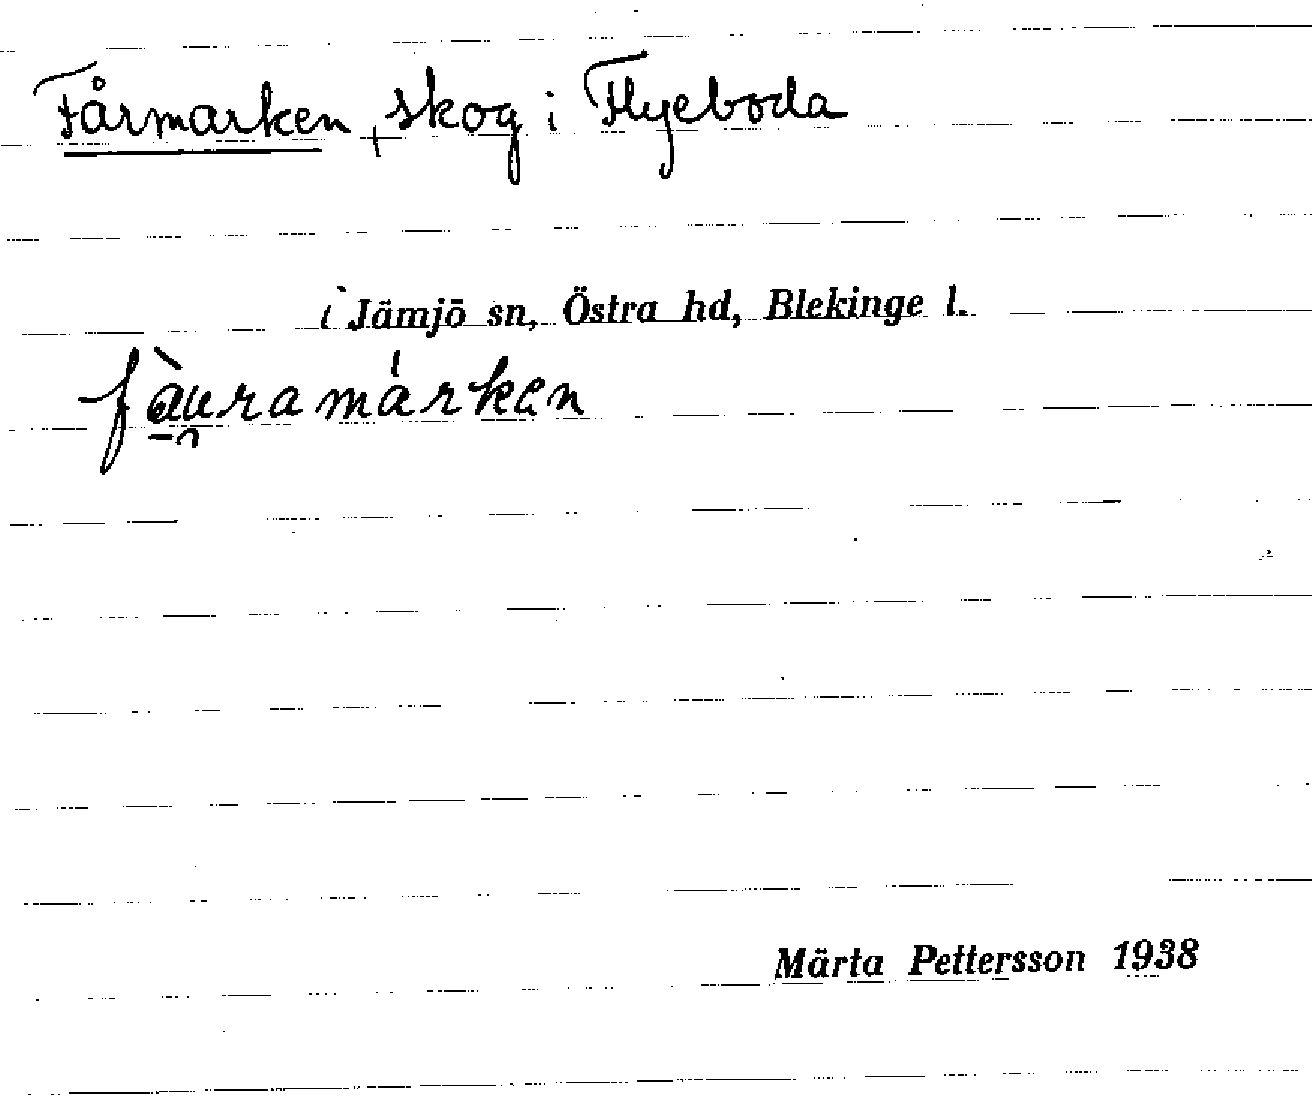 Fårmarken, skog i Flyeboda
i Jämjö sn, Östra hd, Blekinge l.
fàuramárken
Märta Pettersson 1938